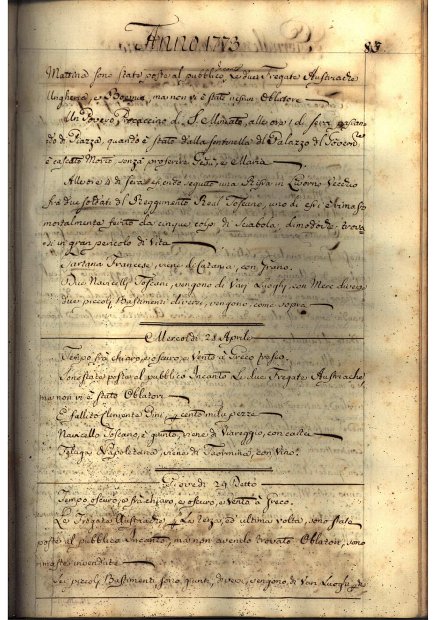 Anno 1773
83
Mattina sono state poste al pubblico le due Fregate Austriache
Ungheria, e ma non vi è stato nissun Oblatore
Un Povero di S. Miniato, alle ore 1 di sera
di Piazza, quando è stato dalla sentinella del Palazzo del
è cascato Morto, senza proferire Gesù, e Maria
Alle ore 4 di sera essendo seguito una Rissa in Livorno Vecchio
fra due soldati del Reggimento Real Toscano, uno di essi è rimaso
mortalmente ferito da cinque colpi di Sciabola, dimodochè trova
si in gran pericolo di Vita
Tartana Francese, viene di Catania, con Grano.
Due Navicelli Toscani, vengono di Varj Luoghi, con Merc diverse
due piccoli Bastimenti diversi, vengono, come sopra
Mercoldì 28 Aprile
Tempo frà chiaro, e oscuro, e Vento à Greco fresco.
Sono state poste al pubblico Incanto Le due Fregate Austriache,
ma non vi è stato Oblatori
È fallito Clemente Pini, cento mila pezze
Navicello Toscano, è giunto, viene di Viareggio, con
Napoletano, viene di Taormina, con Vino.
Giovedì 29 Detto
Tempo oscuro, e frà chiaro, e oscuro, e Vento à Greco.
Le Fregate Austriache p. La terza, ed ultima volta, sono state
poste al pubblico Incanto, ma non avendo trovato Oblatori, sono
rimaste invendute
Sei piccoli Bastimenti sono giunti, diversi, vengono, di Varj Luoghi